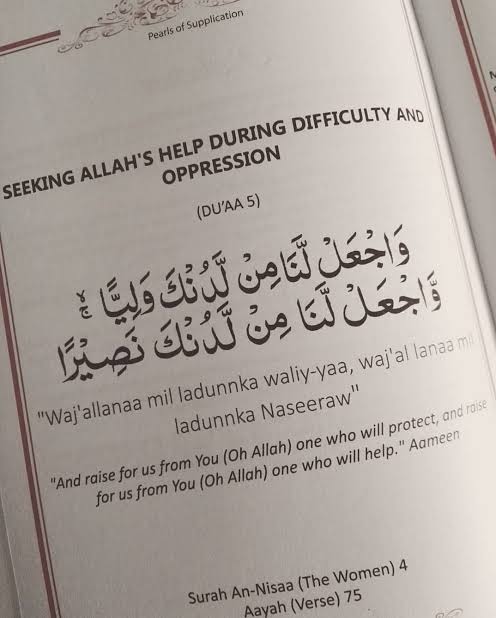 Pearls of Supplication
SEEKING ALLAH'S HELP DURING DIFFICULTY AND
OPPRESSION
(DU'AA 5)
وَاجْعَلْ لَّنَا مِنْ لَّدُنْكَ وَلِيًّا ۚ
وَّاجْعَلْ لَّنَا مِنْ لَّدُنْكَ نَصِيْرًا
"Waj'allanaa mil ladunnka waliy-yaa, waj'al lanaa mil
ladunnka Naseeraw"
"And raise for us from You (Oh Allah) one who will protect, and raise
for us from You (Oh Allah) one who will help." Aameen
Surah An-Nisaa (The Women) 4
Aayah (Verse) 75